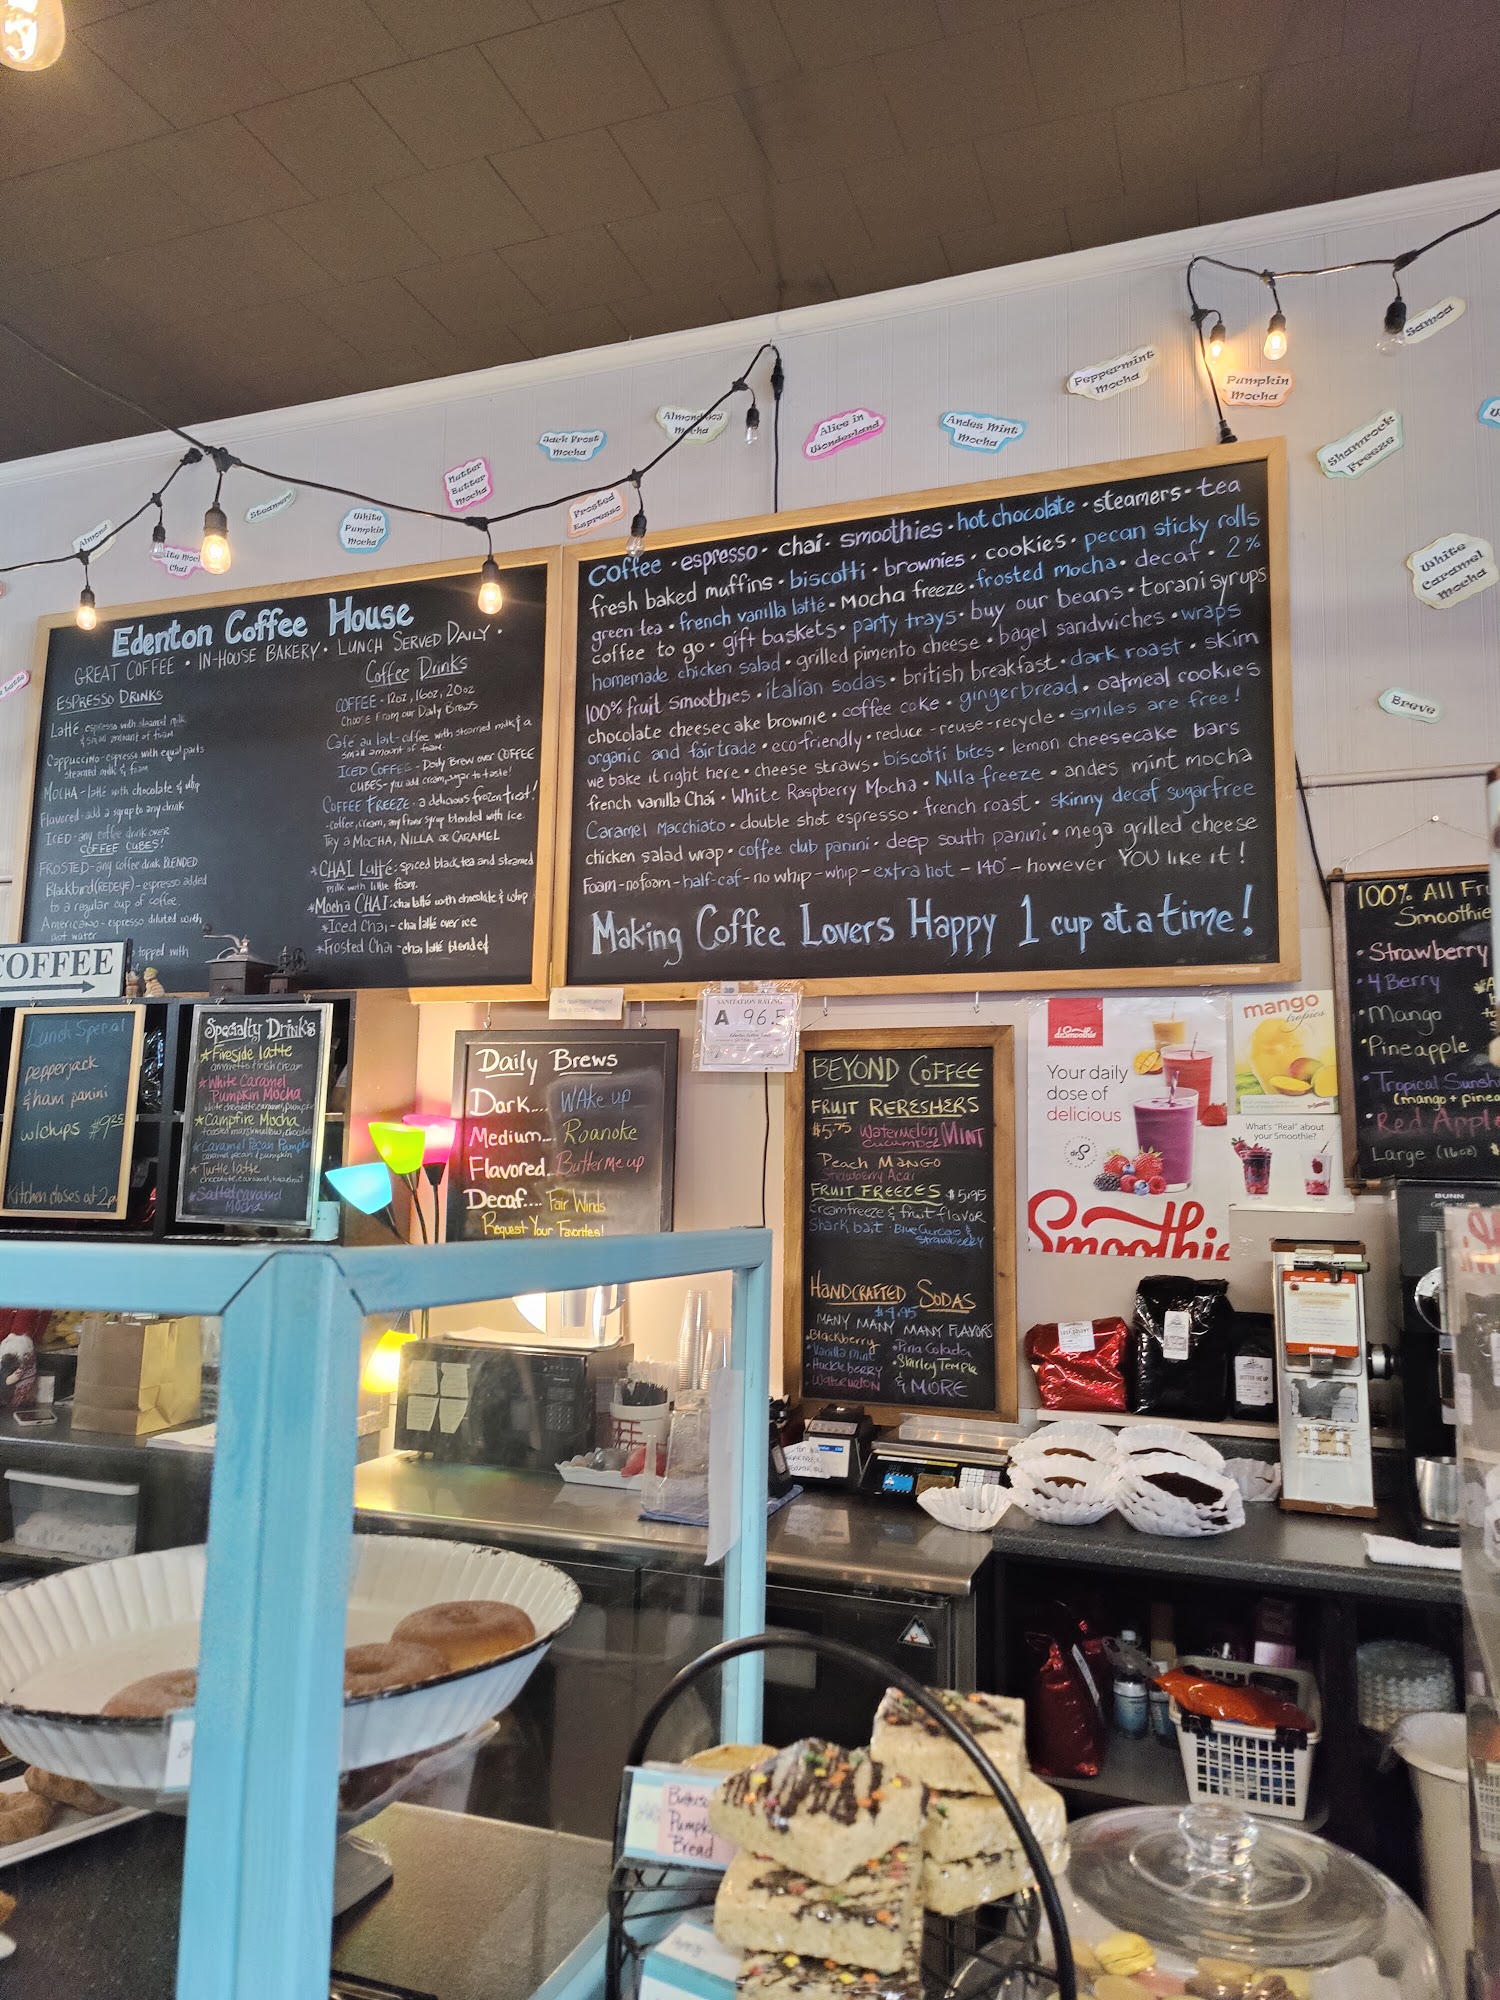 Samoa
Peppermint
Mocha
Pumpkin
Mocha
Almond Joy
Mocha
Alice in
Wonderland
Andes Mint
Mocha
Jack Frost
Mocha
Shamrock
Freeze
Nutter
Butter
Mocha
Steamers
Frosted
Espresso
White
Pumpkin
Mocha
Almond
Chai
White
Caramel
Mocha
Breve
Edenton Coffee House
GREAT COFFEE • IN-HOUSE BAKERY • LUNCH SERVED DAILY •
ESPRESSO DRINKS
Latté-espresso with steamed milk
& small amount of foam
Cappuccino-espresso with equal parts
steamed milk & foam
MOCHA-latté with chocolate & whip
Flavored-add a syrup to any drink
ICED-any coffee drink over
COFFEE CUBES!
FROSTED-any coffee drink BLENDED
Blackbird(REDEYE)-espresso added
to a regular cup of coffee
Americano-espresso diluted with
hot water
topped with
Coffee Drinks
COFFEE-12oz, 16oz, 20oz
Choose From our Daily Brews
Café au lait-coffee with steamed milk & a
small amount of foam
ICED COFFEE-Daily Brew over COFFEE
CUBES-you add cream, sugar to taste!
COFFEE FREEZE-a delicious frozen treat!
-coffee, cream, any flavor syrup blended with ice
Try a MOCHA, NILLA or CARAMEL
*CHAI Latté: spiced black tea and steamed
milk with little foam
*Mocha CHAI: chai latté with chocolate & whip
*Iced Chai-chai latté over ice
*Frosted Chai-chai latté blended
coffee • espresso • chai • smoothies • hot chocolate • steamers • tea
fresh baked muffins • biscotti • brownies • cookies • pecan sticky rolls
green tea • french vanilla latté • Mocha freeze • frosted mocha • decaf • 2%
coffee to go • gift baskets • party trays • buy our beans • torani syrups
homemade chicken salad • grilled pimento cheese • bagel sandwiches • wraps
100% fruit smoothies • italian sodas • british breakfast • dark roast • skim
chocolate cheesecake brownie • coffee cake • gingerbread • oatmeal cookies
organic and fairtrade • eco-friendly • reduce-reuse-recycle • smiles are free!
we bake it right here • cheese straws • biscotti bites • lemon cheesecake bars
french vanilla Chai • White Raspberry Mocha • Nilla freeze • andes mint mocha
Caramel Macchiato • double shot espresso • french roast • skinny decaf sugarfree
chicken salad wrap • coffee club panini • deep south panini • mega grilled cheese
Foam-nofoam-half-caf-no whip-whip-extra hot-140°-however YOU like it!
Making Coffee Lovers Happy 1 cup at a time!
COFFEE
Lunch Special
pepperjack
& ham panini
w/chips $9.25
Kitchen closes at 2p
Specialty Drinks
*Fireside latte
amaretto & irish cream
*White Caramel
Pumpkin Mocha
*Campfire Mocha
*Caramel Pecan Pumpkin
caramel pecan & pumpkin
*Turtle latte
chocolate, caramel, hazelnut
*Salted caramel
Mocha
Daily Brews
Dark.... WAke up
Medium... Roanoke
Flavored. Butter me up
Decaf.... Fair Winds
Request Your Favorites!
SANITATION RATING
A 96.5
BEYOND COFFEE
FRUIT REFRESHERS
$5.75 Watermelon MINT
Cucumber
PEACH MANGO
Strawberry Acai
FRUIT FREEZES $5.95
Creamfreeze & fruit flavor
Shark bait - Blue Curcao &
Strawberry
HANDCRAFTED SODAS
$4.95
MANY MANY MANY FLAVORS
Blackberry
•Vanilla Mint
•Huckleberry
•Watermelon
•Pina Colada
•Shirley Temple
& MORE
dr.Smoothie
Your daily
dose of
delicious
Smoothie
mango
tropics
What's "Real" about
your Smoothie?
100% All Fru
Smoothie
•Strawberry
•4 Berry
•Mango
•Pineapple
•Tropical Sunsh
(mango + pinea
•Red Apple
Large (16oz)
BUNN
Pumpk
Bread